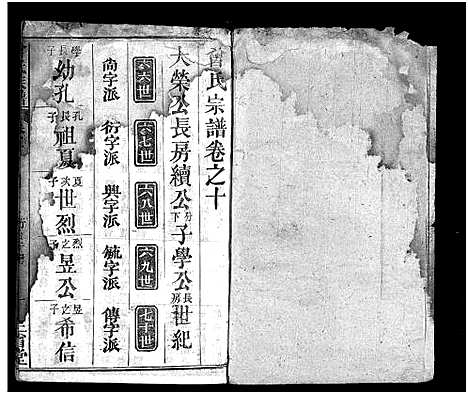 曾氏宗譜卷之十
大榮公長房續公分下子學公長房世紀
六六世 六七世 六八世 六九世 七十世
尚字派 衍字派 興字派 毓字派 傳字派
學長子 幼孔 孔長子 祖夏 夏次子 世烈 烈之子 昱公 昱之子 希信